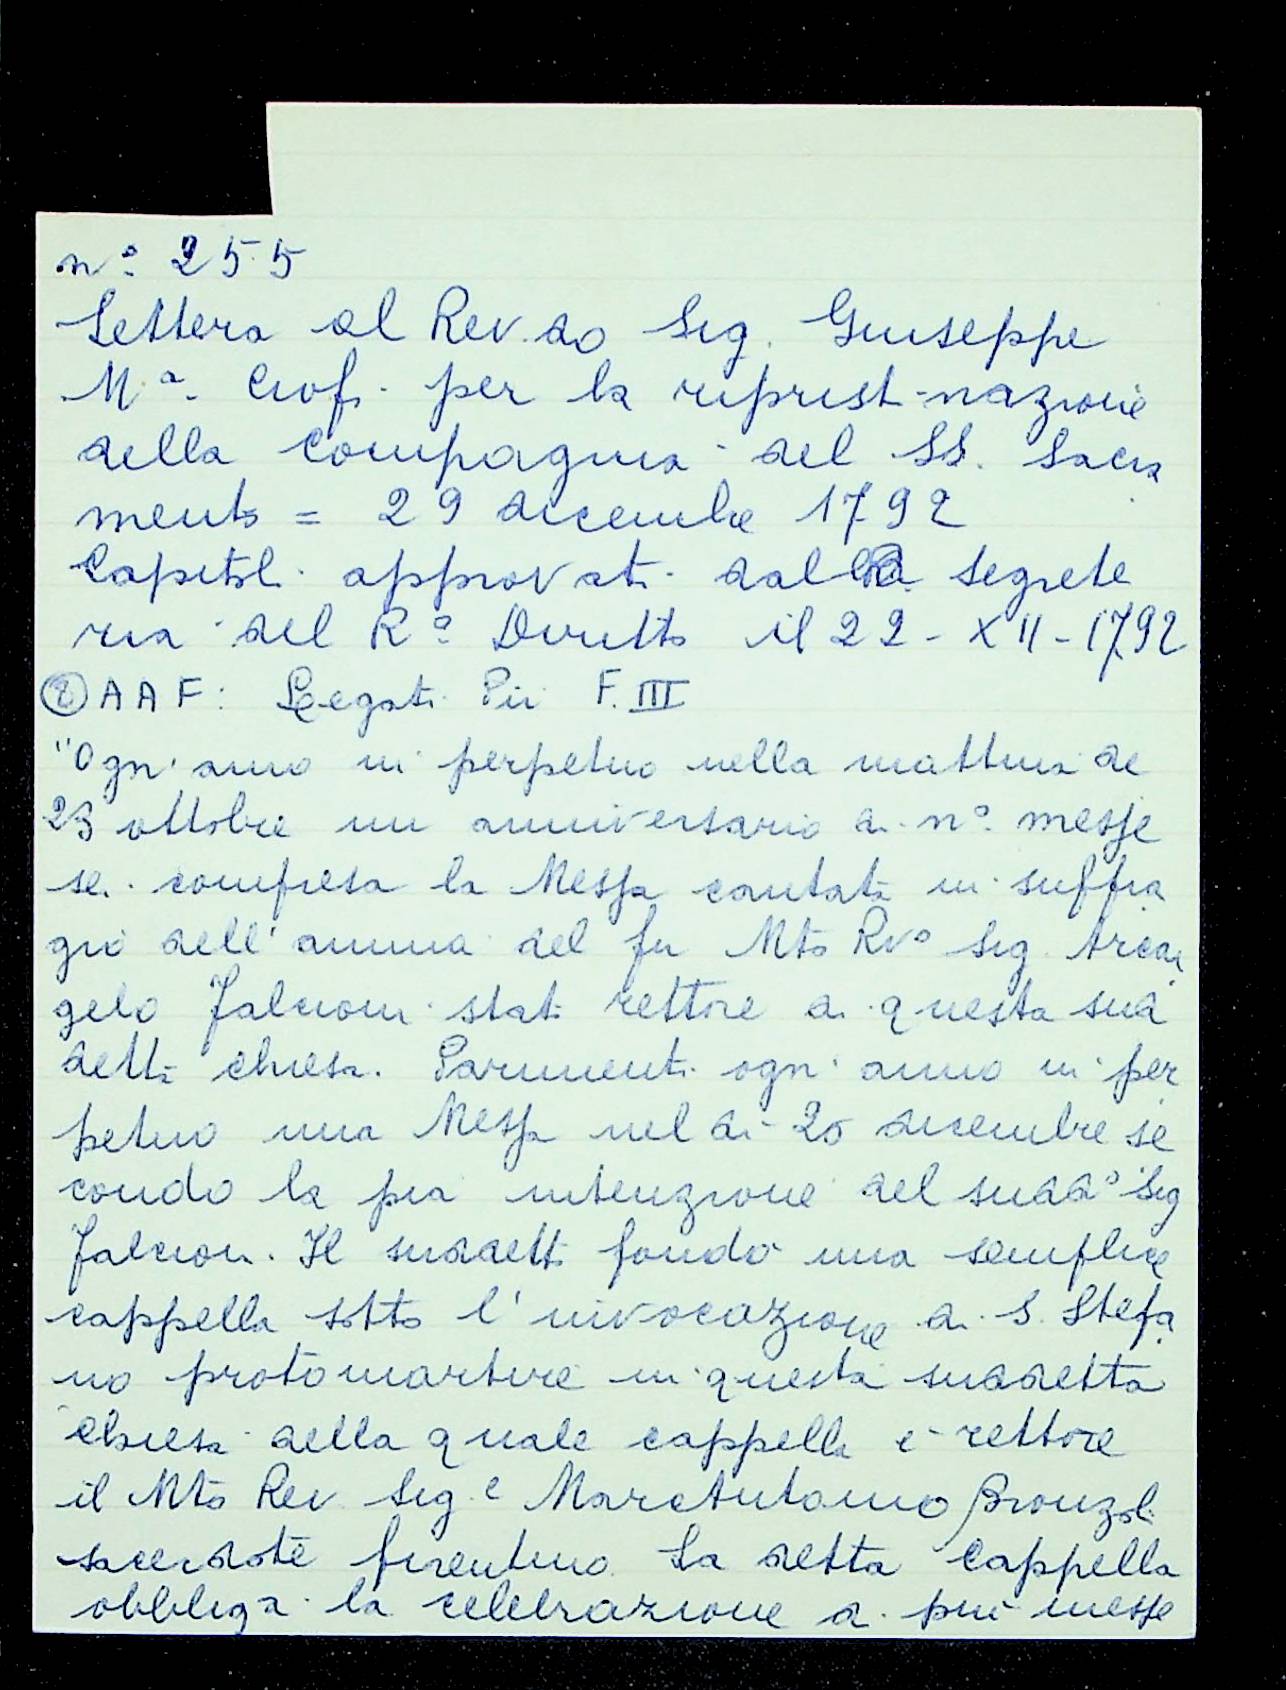 n° 255
Lettera al Rev.do Sig. Giuseppe
M.a Ciofi per la ripristinazione
della Compagnia del SS. Sacra
mento = 29 dicembre 1792
Capitoli approvati dalla Segrete
ria del R° Diritto il 22-XII-1792
② AAF: Legati Pii F. III
"Ogni anno in perpetuo nella mattina de
23 ottobre un anniversario di n° messe
sei compresa la Messa cantata in suffra
gio dell'anima del fu Mto Rvo Sig. Arcan
gelo Falcioni stato rettore di questa sud
detta chiesa. Parimenti ogni anno in per
petuo una Messa nel dì 20 dicembre se
condo la pia intenzione del sudd° Sig
Falcioni. Il suddetto fondò una semplice
cappella sotto l'invocazione di S. Stefa
no protomartire in questa suddetta
chiesa della quale cappella è rettore
il Mto Rev. Sig.e MarcAntonio Bronzoli
sacerdote fiorentino. La detta Cappella
obbliga la celebrazione di più messe